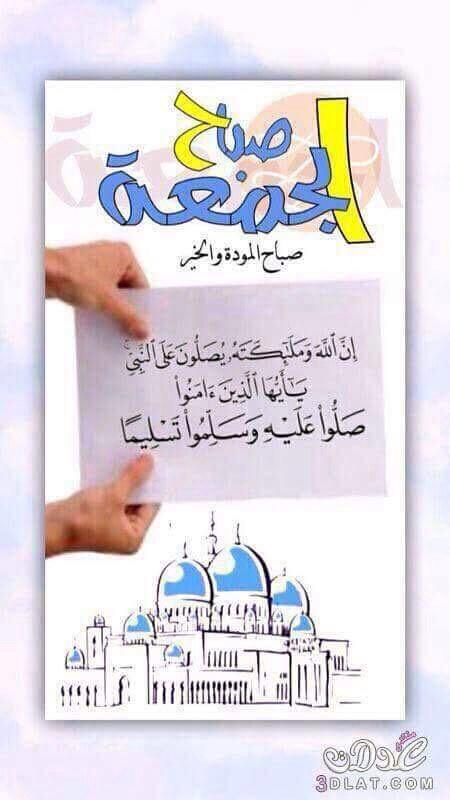 صباح
الجمعة
صباح المودة والخير
إِنَّ اللَّهَ وَمَلَٰٓئِكَتَهُۥ يُصَلُّونَ عَلَى النَّبِيِّ ۚ
يَٰٓأَيُّهَا الَّذِينَ ءَامَنُوا۟
صَلُّوا۟ عَلَيْهِ وَسَلِّمُوا۟ تَسْلِيمًا
منتدى عدلات
3DLAT.COM